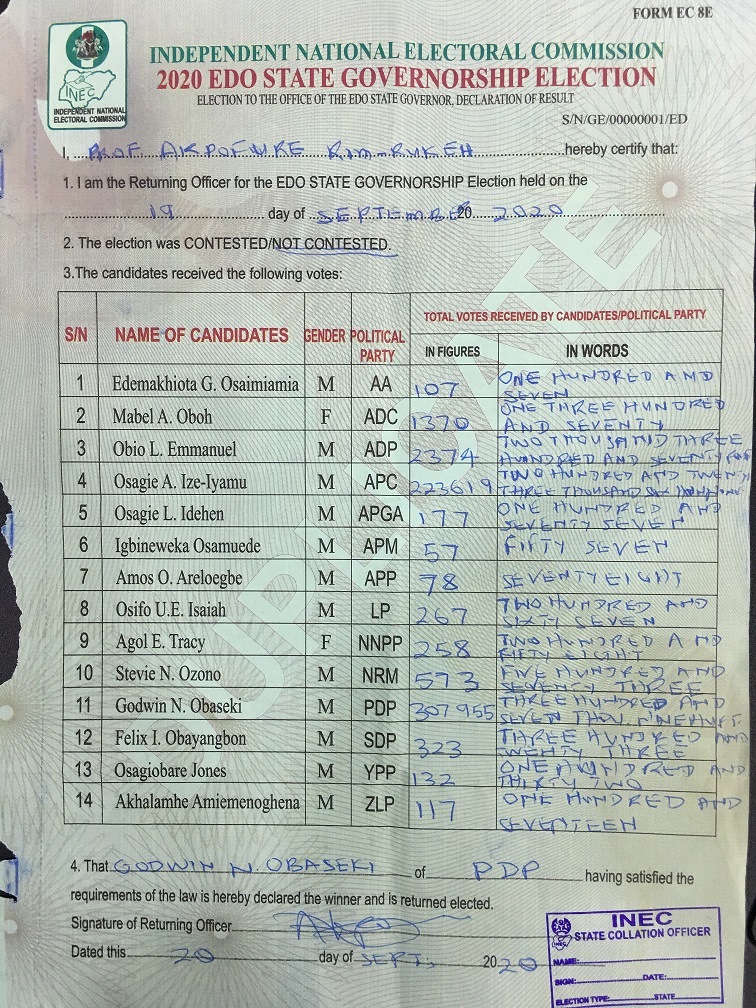 FORM EC 8E
INEC
INDEPENDENT NATIONAL
ELECTORAL COMMISSION
INDEPENDENT NATIONAL ELECTORAL COMMISSION
2020 EDO STATE GOVERNORSHIP ELECTION
ELECTION TO THE OFFICE OF THE EDO STATE GOVERNOR, DECLARATION OF RESULT
S/N/GE/00000001/ED
I, PROF AKPOFURE RIM-RUKEH hereby certify that:
1. I am the Returning Officer for the EDO STATE GOVERNORSHIP Election held on the
19 day of SEPTEMBER 20 2020
2. The election was CONTESTED/NOT CONTESTED.
3.The candidates received the following votes:
S/N NAME OF CANDIDATES GENDER POLITICAL PARTY TOTAL VOTES RECEIVED BY CANDIDATES/POLITICAL PARTY
IN FIGURES IN WORDS
1 Edemakhiota G. Osaimiamia M AA 107 ONE HUNDRED AND SEVEN
2 Mabel A. Oboh F ADC 1370 ONE THREE HUNDRED AND SEVENTY
3 Obio L. Emmanuel M ADP 2374 TWO THOUSAND THREE HUNDRED AND SEVENTY FOR
4 Osagie A. Ize-Iyamu M APC 223619 TWO HUNDRED AND TWENTY THREE THOUSAND SIX
5 Osagie L. Idehen M APGA 177 ONE HUNDRED AND SEVENTY SEVEN
6 Igbineweka Osamuede M APM 57 FIFTY SEVEN
7 Amos O. Areloegbe M APP 78 SEVENTY EIGHT
8 Osifo U.E. Isaiah M LP 267 TWO HUNDRED AND SIXTY SEVEN
9 Agol E. Tracy F NNPP 258 TWO HUNDRED AND FIFTY EIGHT
10 Stevie N. Ozono M NRM 573 FIVE HUNDRED AND SEVENTY THREE
11 Godwin N. Obaseki M PDP 307955 THREE HUNDRED AND SEVEN THOU
12 Felix I. Obayangbon M SDP 323 THREE HUNDRED AND TWENTY THREE
13 Osagiobare Jones M YPP 132 ONE HUNDRED AND THIRTY TWO
14 Akhalamhe Amiemenoghena M ZLP 117 ONE HUNDRED AND SEVENTEEN
DUPLICATE
4. That GODWIN N. OBASEKI of PDP having satisfied the
requirements of the law is hereby declared the winner and is returned elected.
Signature of Returning Officer
Dated this 20 day of SEPT, 20 20
INEC
STATE COLLATION OFFICER
NAME:
SIGN: DATE:
ELECTION TYPE: STATE